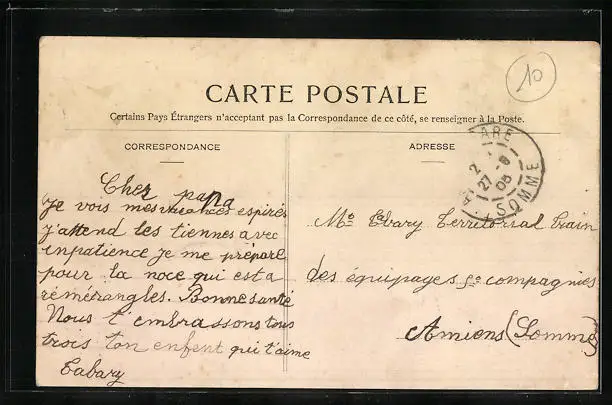 10
CARTE POSTALE
Certains Pays Étrangers n'acceptant pas la Correspondance de ce côté, se renseigner à la Poste.
CORRESPONDANCE
Cher papa
Je vois mes vacances espirés
j'attend les tiennes avec
inpatience je me prépare
pour la noce qui est a
rémérangles. Bonne santé
Nous t'embrassons tous
trois ton enfent qui t'aime
Cabary
ADRESSE
GARE
2
27 -8
05
SOMME
Mr Cabary Territorial Train
des équipages 5e compagnies
Amiens (Somme)